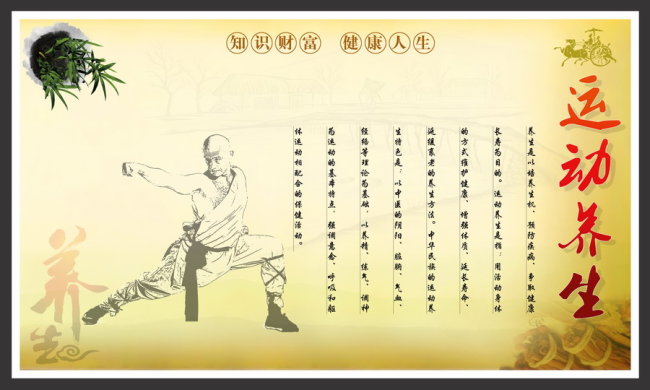 知识财富 健康人生
运动养生
养生是以培养生机、预防疾病、争取健康
长寿为目的。运动养生是指：用活动身体
的方式维护健康、增强体质、延长寿命、
延缓衰老的养生方法。中华民族的运动养
生特色是：以中医的阴阳、脏腑、气血、
经络等理论为基础，以养精、练气、调神
为运动的基本特点，强调意念、呼吸和躯
体运动相配合的保健活动。
养生